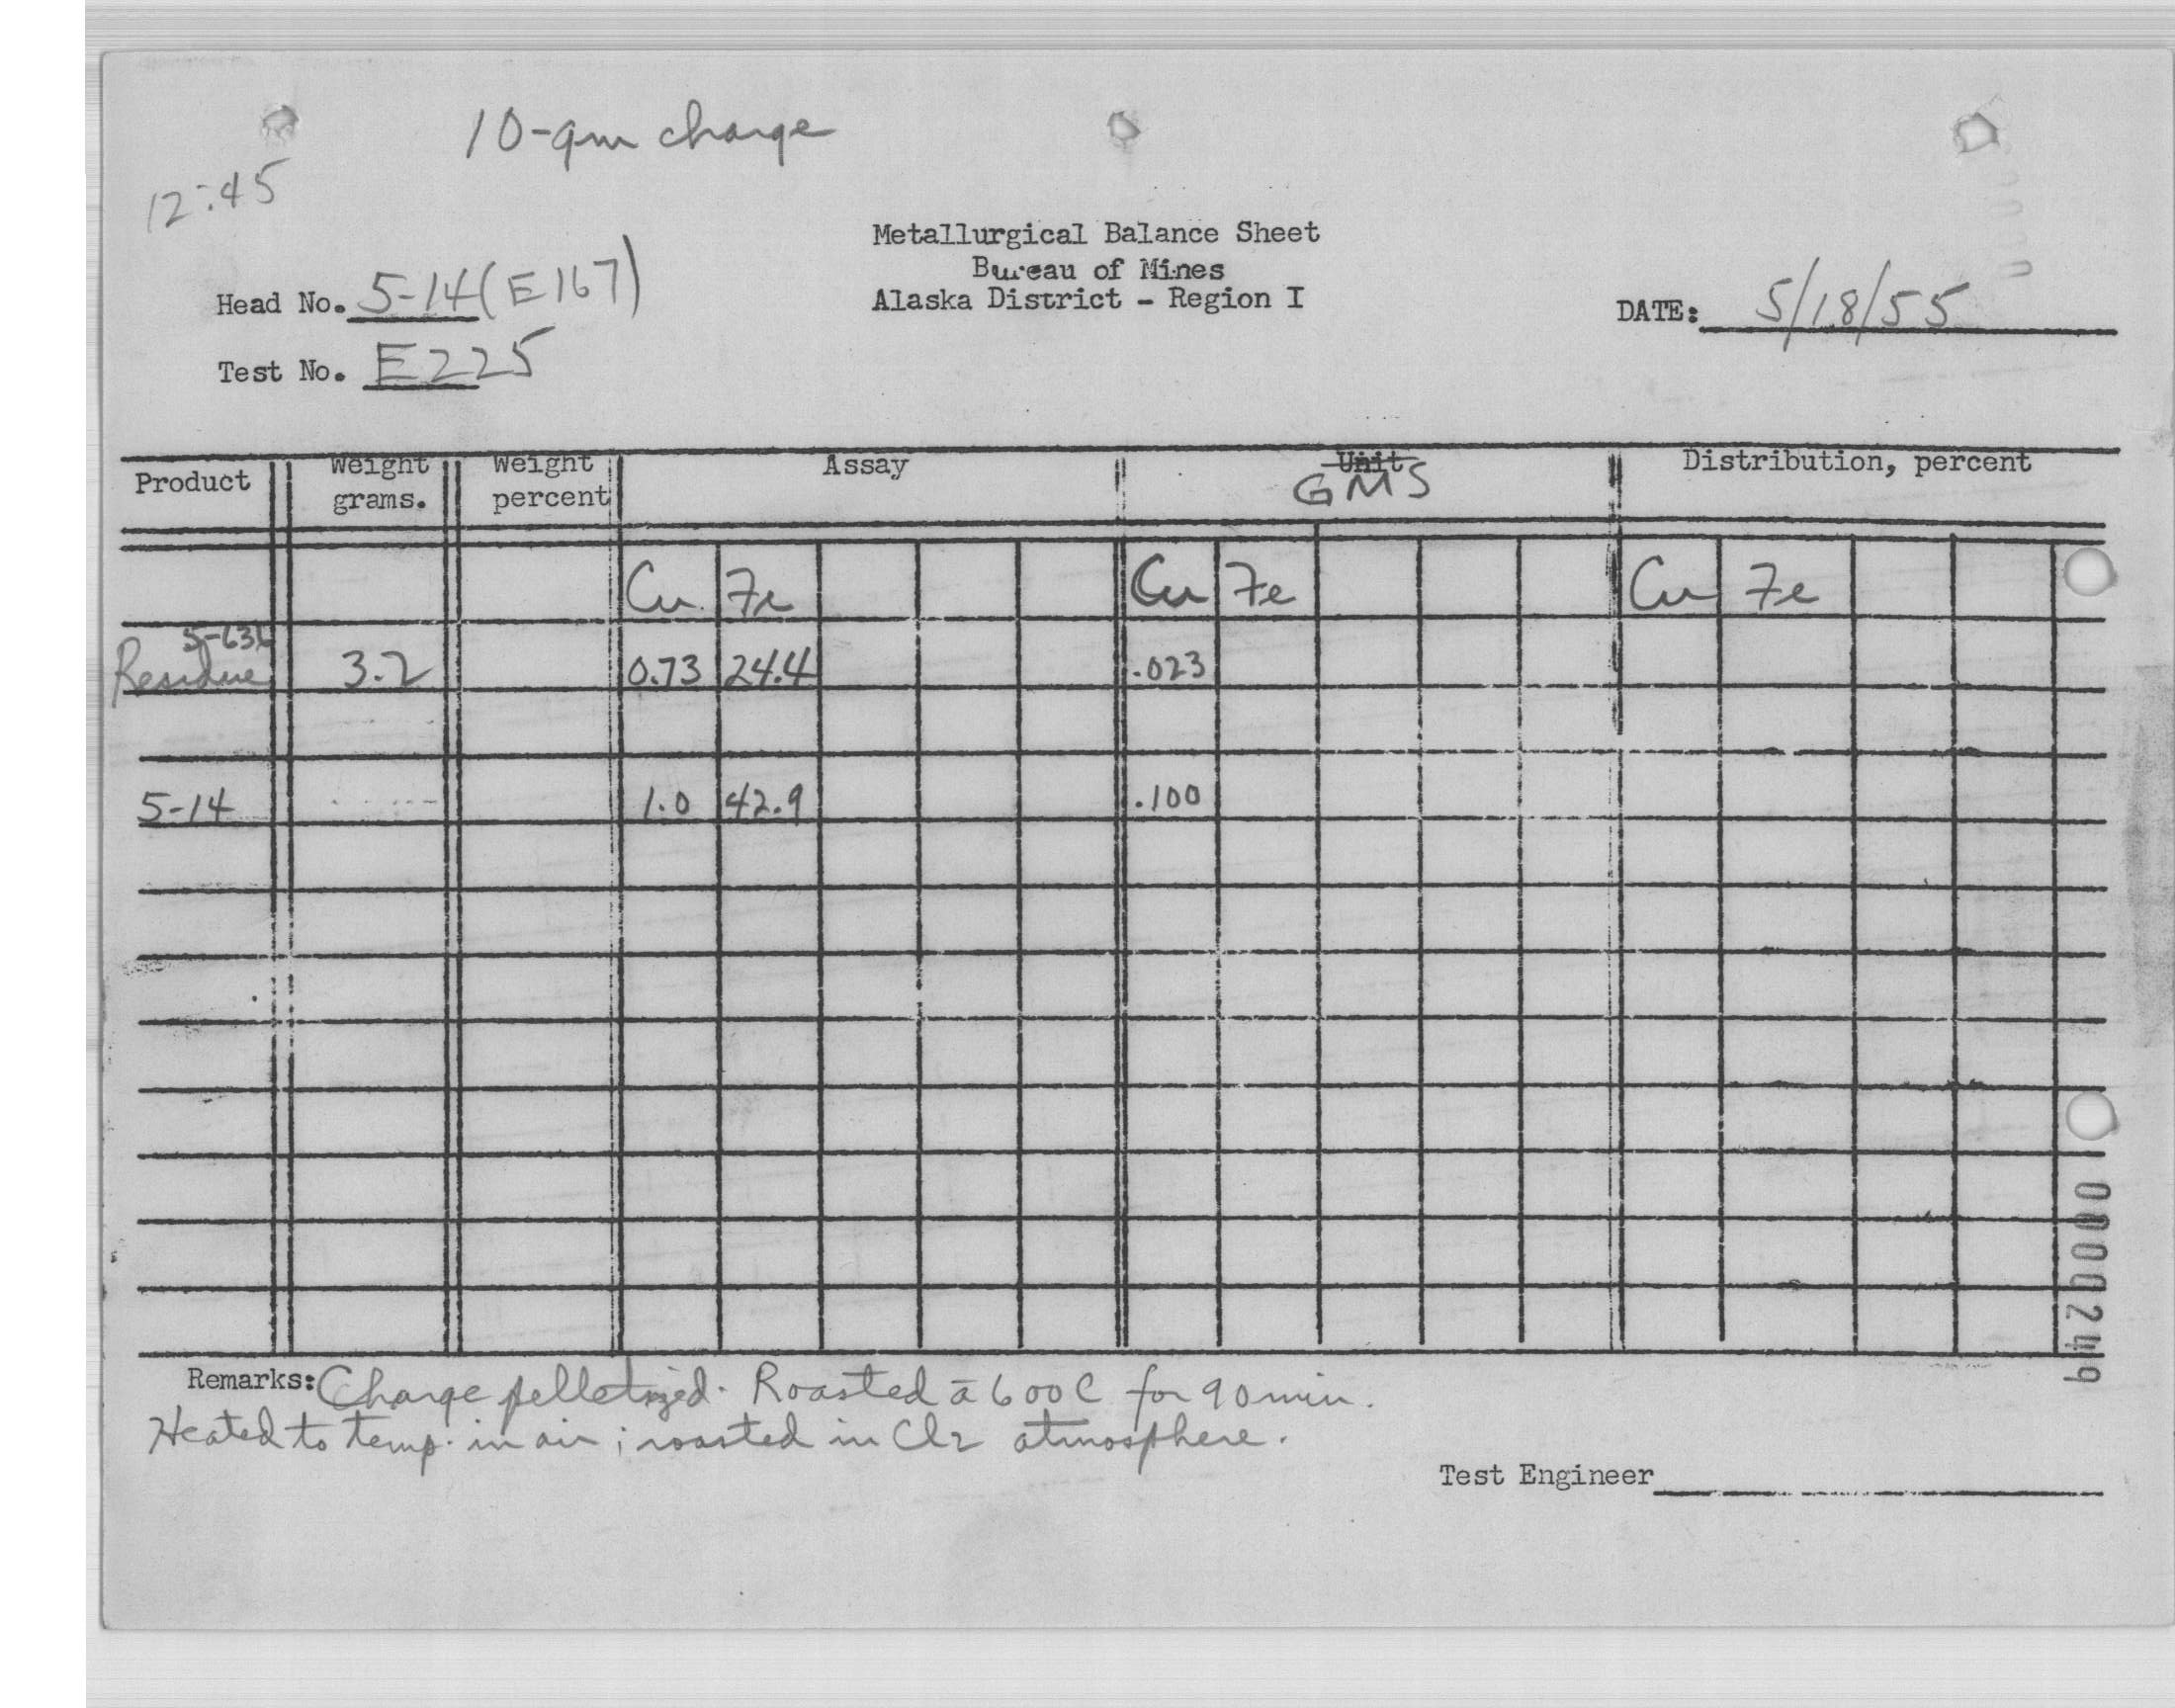 10-gm charge
12:45
Metallurgical Balance Sheet
Bureau of Mines
Alaska District - Region I
Head No. 5-14 (E167)
DATE: 5/18/55
Test No. E225
Product Weight grams. Weight percent Assay Unit GMS Distribution, percent
Cu Fe Cu Fe Cu Fe
Residue 3.2 0.73 24.4 .023
5-14 1.0 42.9 .100
Remarks: Charge pelletized. Roasted @ 600C for 90 min.
Heated to temp. in air; roasted in Cl2 atmosphere.
Test Engineer
0000249